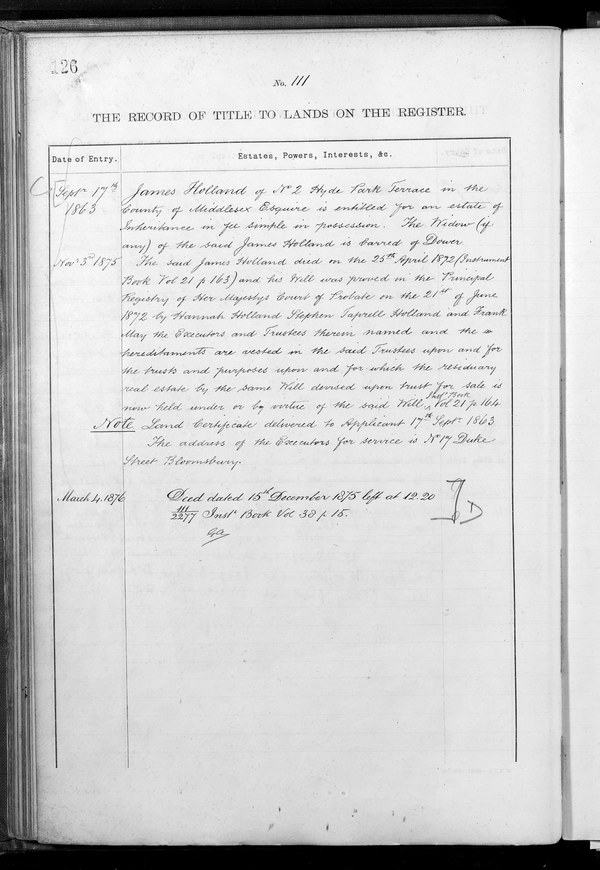 126
No. 111
THE RECORD OF TITLE TO LANDS ON THE REGISTER.
Date of Entry.
Estates, Powers, Interests, &c.
Septr 17th 1863
James Holland of No 2 Hyde Park Terrace in the
County of Middlesex Esquire is entitled for an estate of
Inheritance in fee simple in possession. The Widow (if
any) of the said James Holland is barred of Dower
Novr 3d 1875
The said James Holland died on the 25th April 1872 (Instrument
Book Vol 21 p 163) and his Will was proved in the Principal
Registry of Her Majestys Court of Probate on the 21st of June
1872 by Hannah Holland Stephen Taprell Holland and Frank
May the Executors and Trustees therein named and the =
hereditaments are vested in the said Trustees upon and for
the trusts and purposes upon and for which the residuary
real estate by the same Will devised upon trust for sale is
now held under or by virtue of the said Will Instt Book Vol 21 p 164
Note Land Certificate delivered to Applicant 17th Septr 1863
The address of the Executors for service is No 17 Duke
Street Bloomsbury.
March 4. 1876
Deed dated 15th December 1875 left at 12.20
111/2277 Instt Book Vol 38 p 15.
D